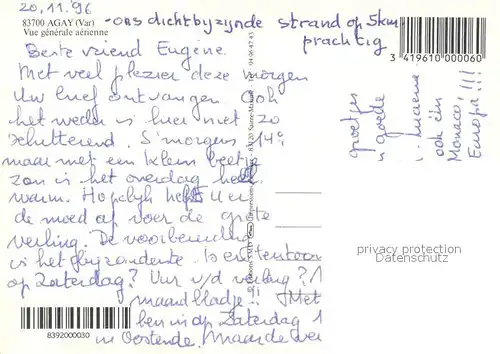 20.11.96
83700 AGAY (Var)
Vue générale aérienne
-ons dichtbyzynde strand op 5km
prachtig
3 419610 000060
Beste vriend Eugène.
Met veel plezier deze morgen
Uw brief ontvangen. Ook
het weder is hier niet zo
schitterend. S'morgens 14°
maar met een klein beetje
zon is het overdag heel
warm. Hopelyk hebt U er
de moed af voor de grote
veiling. De voorbereiding
is het
op Zaterdag? Uur v/d veiling?
maandbladje!! Met
ben in op Zaterdag 1
in Oostende. Maar de ver
groetjes
goede
ook één
Monaco,
Europa!!!
privacy protection
Datenschutz
8392000030